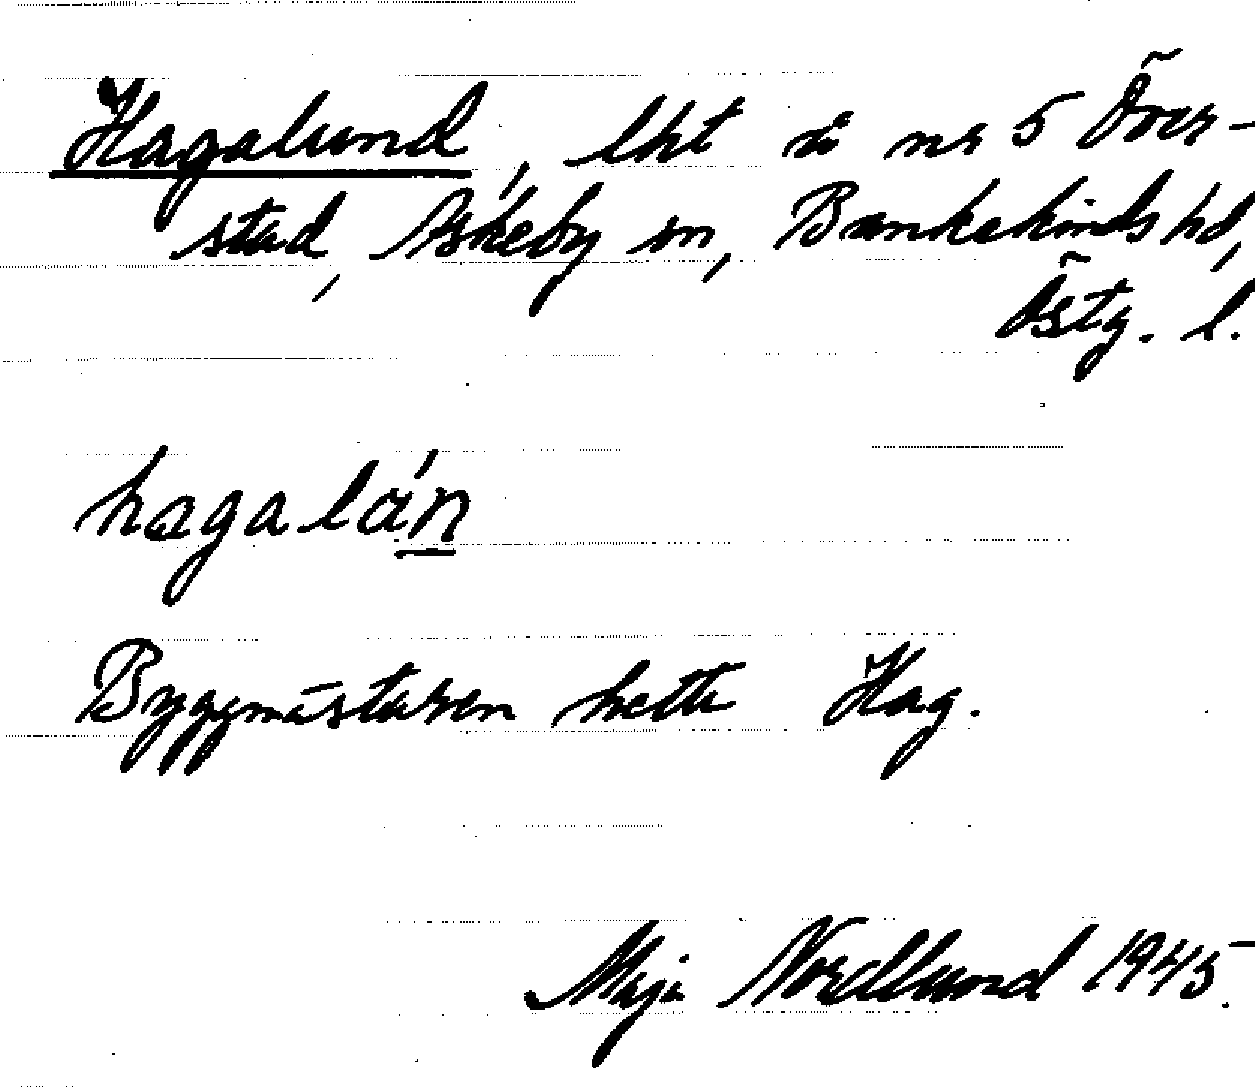 Hagalund, lht å nr 5 Över-
stad, Askeby sn, Bankekinds hd,
Östg. l.
hagalán
Byggmästaren hette Hag.
Maja Nordlund 1945.